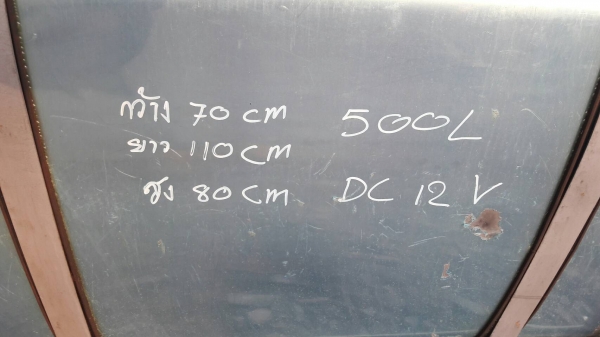 กว้าง 70 cm
ยาว 110 cm
สูง 80 cm
500L
DC 12 V